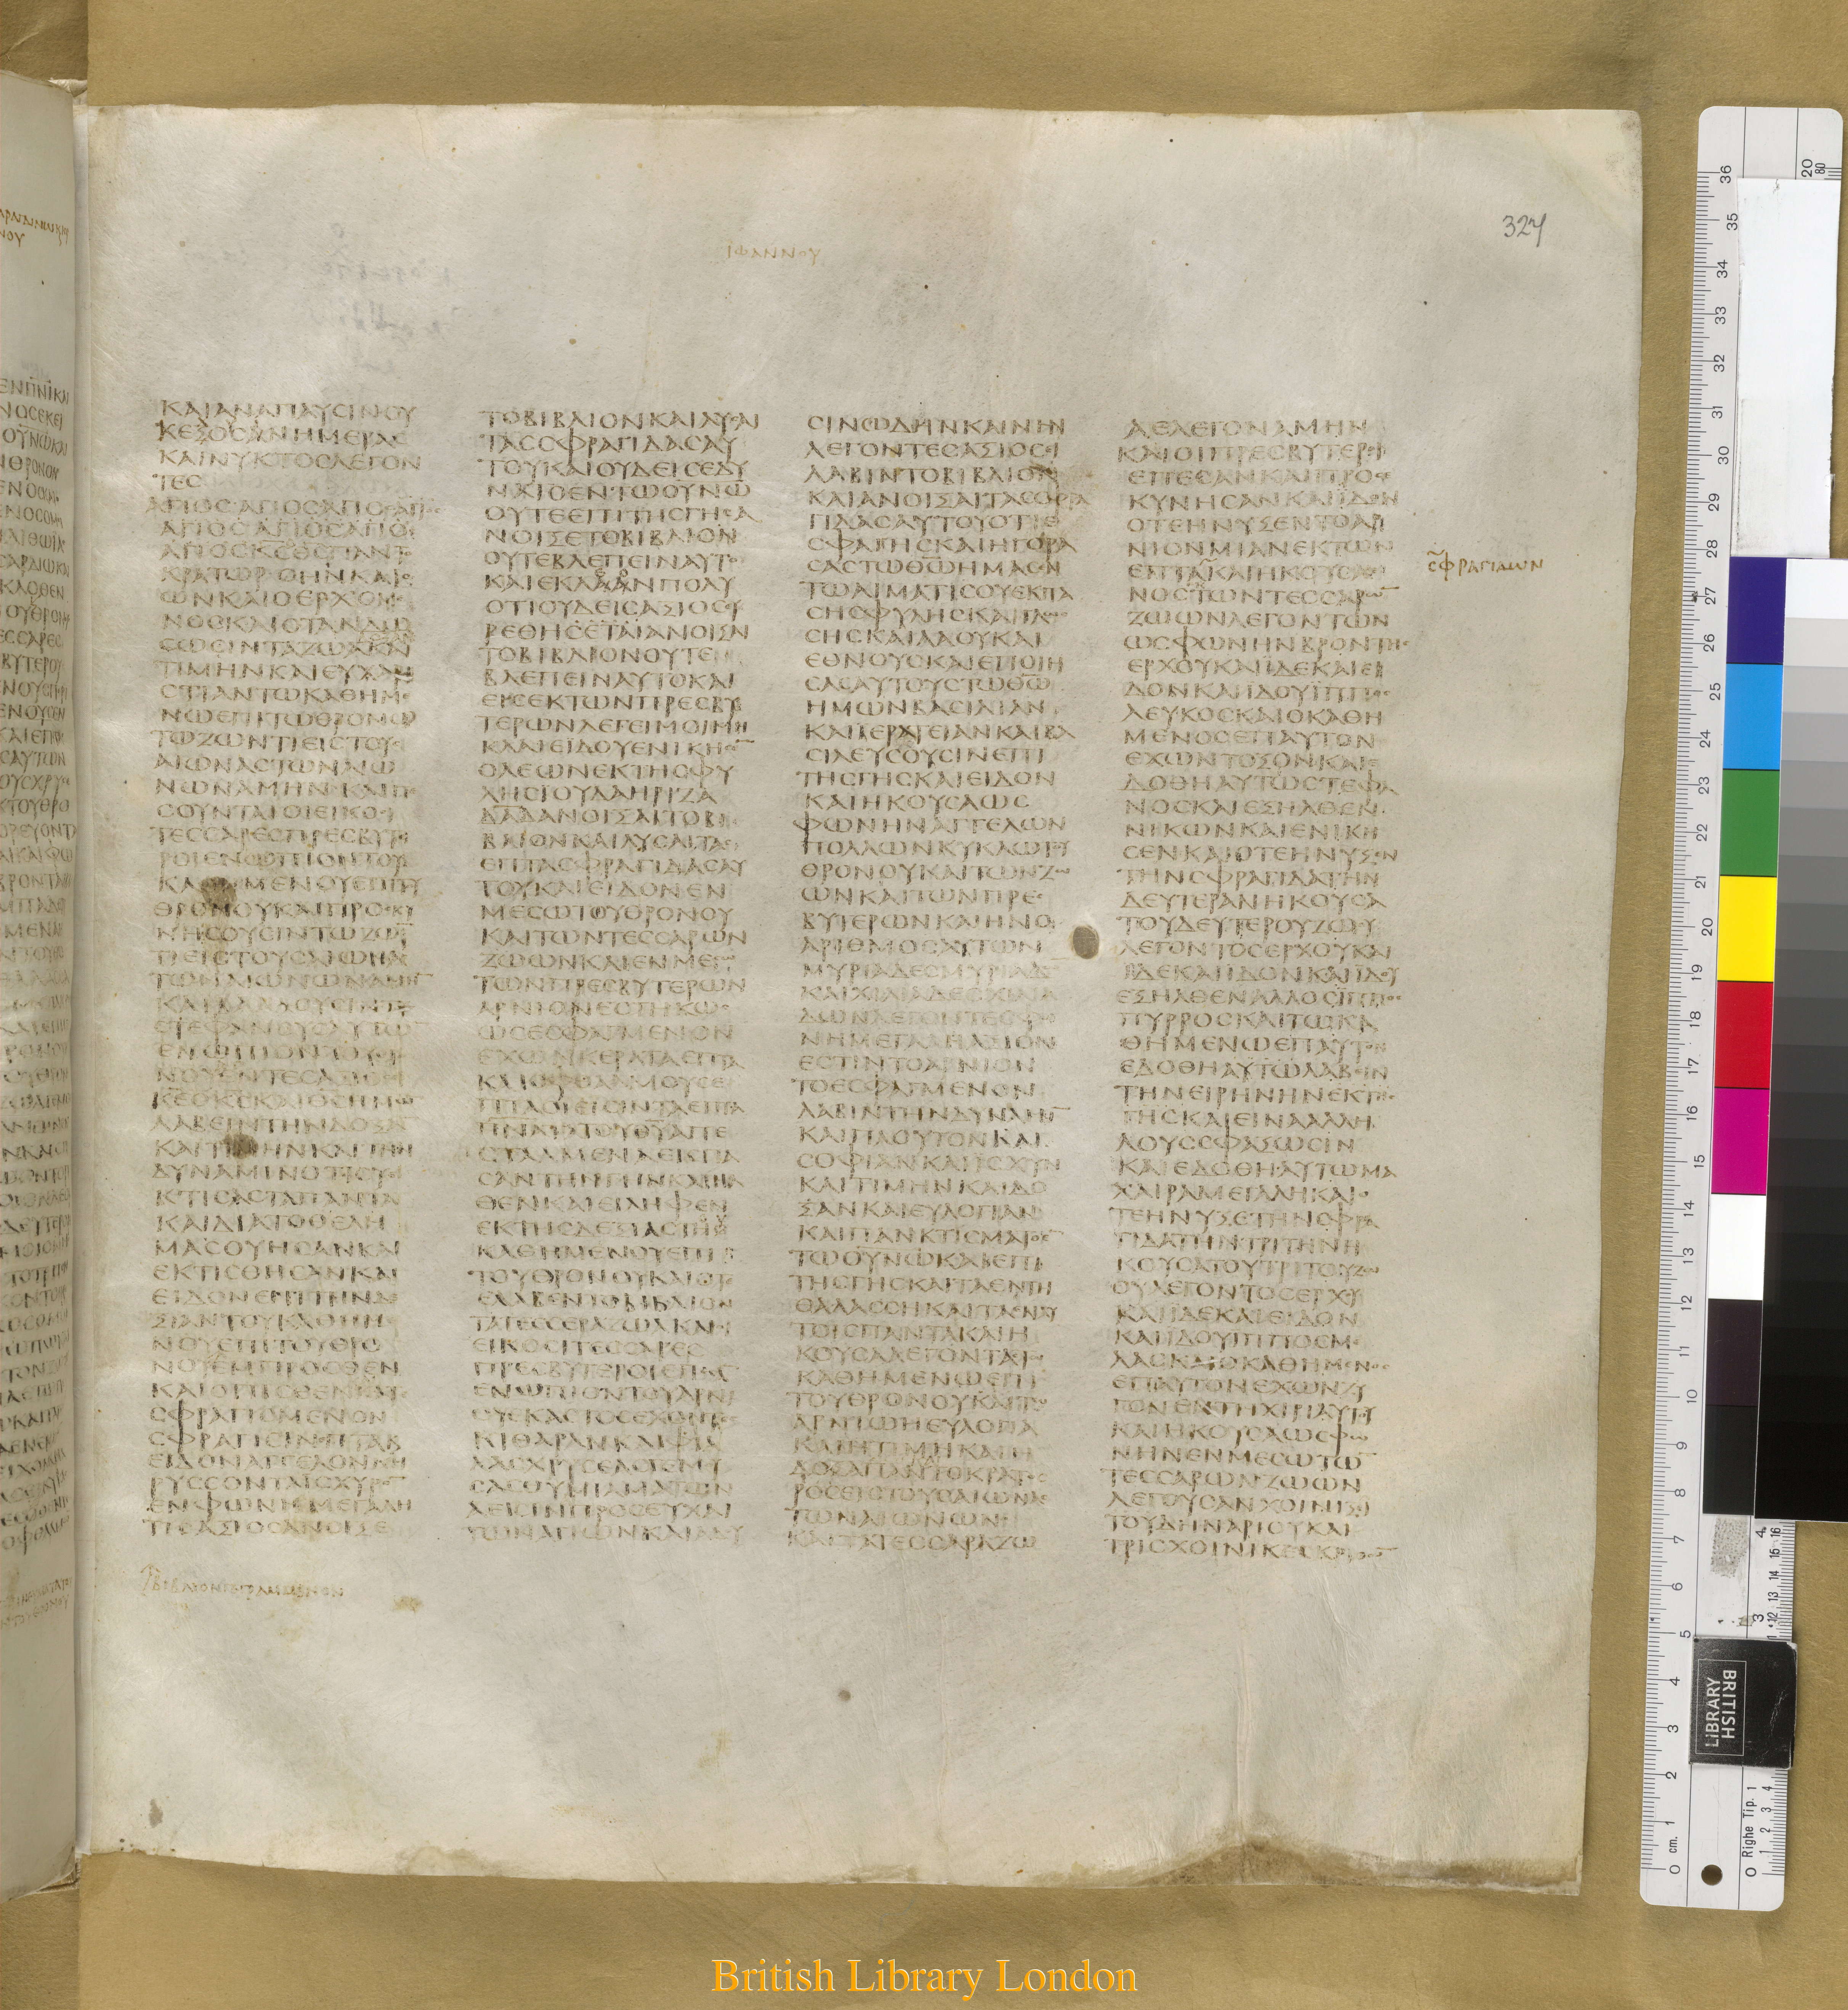 ΙΩΑΝΝΟΥ
327
ΚΑΙΑΝΑΠΑΥϹΙΝΟΥ
ΚΕΞΟϹΑΝΗΜΕΡΑϹ
ΚΑΙΝΥΚΤΟϹΛΕΓΟΝ
ΤΕϹ
ΑΓΙΟϹΑΓΙΟϹΑΓΙΟϹΑΓΙ
ΑΓΙΟϹΑΓΙΟϹΑΓΙΟϹ
ΑΓΙΟϹΚϹΘϹΠΑΝΤΟ
ΚΡΑΤΩΡΟΗΝΚΑΙΟ
ΩΝΚΑΙΟΕΡΧΟΜΕ
ΝΟϹΚΑΙΟΤΑΝΔΩ
ϹΩϹΙΝΤΑΖΩΑΚΑΙ
ΤΙΜΗΝΚΑΙΕΥΧΑΡΙ
ϹΤΙΑΝΤΩΚΑΘΗΜΕ
ΝΩΕΠΙΤΩΘΡΟΝΩ
ΤΩΖΩΝΤΙΕΙϹΤΟΥϹ
ΑΙΩΝΑϹΤΩΝΑΙΩ
ΝΩΝΑΜΗΝΚΑΙΠΕ
ϹΟΥΝΤΑΙΟΙΕΙΚΟϹΙ
ΤΕϹϹΑΡΕϹΠΡΕϹΒΥΤΕ
ΡΟΙΕΝΩΠΙΟΝΤΟΥ
ΚΑΘΗΜΕΝΟΥΕΠΙΤΟΥ
ΘΡΟΝΟΥΚΑΙΠΡΟϹΚΥ
ΝΗϹΟΥϹΙΝΤΩΖΩΝ
ΤΙΕΙϹΤΟΥϹΑΙΩΝΑϹ
ΤΩΝΑΙΩΝΩΝΑΜΗΝ
ΚΑΙΒΑΛΟΥϹΙΝΤΟΥϹ
ϹΤΕΦΑΝΟΥϹΑΥΤΩΝ
ΕΝΩΠΙΟΝΤΟΥΘΡΟ
ΝΟΥΛΕΓΟΝΤΕϹΑΞΙΟϹΕΙ
ΚΕΟΚϹΚΑΙΟΘϹΗΜΩΝ
ΛΑΒΕΙΝΤΗΝΔΟΞΑΝ
ΚΑΙΤΙΜΗΝΚΑΙΤΗΝ
ΔΥΝΑΜΙΝΟΤΙϹΥΕ
ΚΤΙϹΑϹΤΑΠΑΝΤΑ
ΚΑΙΔΙΑΤΟΘΕΛΗ
ΜΑϹΟΥΗϹΑΝΚΑΙ
ΕΚΤΙϹΘΗϹΑΝΚΑΙ
ΕΙΔΟΝΕΠΙΤΗΝΔΕ
ΞΙΑΝΤΟΥΚΑΘΗΜΕ
ΝΟΥΕΠΙΤΟΥΘΡΟ
ΝΟΥΕΜΠΡΟϹΘΕΝ
ΚΑΙΟΠΙϹΘΕΝΚΑΤΕ
ϹΦΡΑΓΙϹΜΕΝΟΝ
ϹΦΡΑΓΙϹΙΝΕΠΤΑΚΑΙ
ΕΙΔΟΝΑΓΓΕΛΟΝΚΗ
ΡΥϹϹΟΝΤΑΙϹΧΥΡΟΝ
ΕΝΦΩΝΗΜΕΓΑΛΗ
ΤΙϹΑΞΙΟϹΑΝΟΙΞΕ
ΒΙΒΛΙΟΝΓΕΓΡΑΜΜΕΝΟΝ
ΤΟΒΙΒΛΙΟΝΚΑΙΛΥϹΑΙ
ΤΑϹϹΦΡΑΓΙΔΑϹΑΥ
ΤΟΥΚΑΙΟΥΔΕΙϹΕΔΥ
ΝΑΤΟΕΝΤΩΟΥΝΩ
ΟΥΤΕΕΠΙΤΗϹΓΗϹΑ
ΝΟΙΞΕΤΟΒΙΒΛΙΟΝ
ΟΥΤΕΒΛΕΠΕΙΝΑΥΤΟ
ΚΑΙΕΚΛΑΙΟΝΠΟΛΥ
ΟΤΙΟΥΔΕΙϹΑΞΙΟϹΕΥ
ΡΕΘΗϹΕΤΑΙΑΝΟΙΞΑΙ
ΤΟΒΙΒΛΙΟΝΟΥΤΕ
ΒΛΕΠΕΙΝΑΥΤΟΚΑΙ
ΕΙϹΕΚΤΩΝΠΡΕϹΒΥ
ΤΕΡΩΝΛΕΓΕΙΜΟΙΜΗ
ΚΛΑΙΕΙΔΟΥΕΝΙΚΗϹΕΝ
ΟΛΕΩΝΕΚΤΗϹΦΥ
ΛΗϹΙΟΥΔΑΗΡΙΖΑ
ΔΑΔΑΝΟΙΞΑΙΤΟΒΙ
ΒΛΙΟΝΚΑΙΛΥϹΑΙΤΑϹ
ΕΠΤΑϹΦΡΑΓΙΔΑϹΑΥ
ΤΟΥΚΑΙΕΙΔΟΝΕΝ
ΜΕϹΩΤΟΥΘΡΟΝΟΥ
ΚΑΙΤΩΝΤΕϹϹΑΡΩΝ
ΖΩΩΝΚΑΙΕΝΜΕϹΩ
ΤΩΝΠΡΕϹΒΥΤΕΡΩΝ
ΑΡΝΙΟΝΕϹΤΗΚΩϹ
ΩϹΕϹΦΑΓΜΕΝΟΝ
ΕΧΩΝΚΕΡΑΤΑΕΠΤΑ
ΚΑΙΟΦΘΑΛΜΟΥϹΕ
ΠΤΑΟΙΕΙϹΙΝΤΑΕΠΤΑ
ΠΝΑΤΟΥΘΥΑΠΕ
ϹΤΑΛΜΕΝΑΕΙϹΠΑ
ϹΑΝΤΗΝΓΗΝΚΑΙΗΛ
ΘΕΝΚΑΙΕΙΛΗΦΕΝ
ΕΚΤΗϹΔΕΞΙΑϹΤΟΥ
ΚΑΘΗΜΕΝΟΥΕΠΙ
ΤΟΥΘΡΟΝΟΥΚΑΙΟΤΕ
ΕΛΑΒΕΝΤΟΒΙΒΛΙΟΝ
ΤΑΤΕϹϹΕΡΑΖΩΑΚΑΙ
ΕΙΚΟϹΙΤΕϹϹΑΡΕϹ
ΠΡΕϹΒΥΤΕΡΟΙΕΠΕϹΑΝ
ΕΝΩΠΙΟΝΤΟΥΑΡΝΙ
ΟΥΕΚΑϹΤΟϹΕΧΟΝΤΕϹ
ΚΙΘΑΡΑΝΚΑΙΦΙΑ
ΛΑϹΧΡΥϹΕΑϹΓΕΜΟΥ
ϹΑϹΘΥΜΙΑΜΑΤΩΝ
ΑΕΙϹΙΝΠΡΟϹΕΥΧΑΙ
ΤΩΝΑΓΙΩΝΚΑΙΑΔΟΥ
ϹΙΝΩΔΗΝΚΑΙΝΗΝ
ΛΕΓΟΝΤΕϹΑΞΙΟϹΕΙ
ΛΑΒΙΝΤΟΒΙΒΛΙΟΝ
ΚΑΙΑΝΟΙΞΑΙΤΑϹϹΦΡΑ
ΓΙΔΑϹΑΥΤΟΥΟΤΙΕ
ϹΦΑΓΗϹΚΑΙΗΓΟΡΑ
ϹΑϹΤΩΘΩΗΜΑϹΕΝ
ΤΩΑΙΜΑΤΙϹΟΥΕΚΠΑ
ϹΗϹΦΥΛΗϹΚΑΙΓΛΩϹ
ϹΗϹΚΑΙΛΑΟΥΚΑΙ
ΕΘΝΟΥϹΚΑΙΕΠΟΙΗ
ϹΑϹΑΥΤΟΥϹΤΩΘΩ
ΗΜΩΝΒΑϹΙΛΙΑΝ
ΚΑΙΙΕΡΑΤΕΙΑΝΚΑΙΒΑ
ϹΙΛΕΥϹΟΥϹΙΝΕΠΙ
ΤΗϹΓΗϹΚΑΙΕΙΔΟΝ
ΚΑΙΗΚΟΥϹΑΩϹ
ΦΩΝΗΝΑΓΓΕΛΩΝ
ΠΟΛΛΩΝΚΥΚΛΩΤΟΥ
ΘΡΟΝΟΥΚΑΙΤΩΝΖΩ
ΩΝΚΑΙΤΩΝΠΡΕϹ
ΒΥΤΕΡΩΝΚΑΙΗΝΟ
ΑΡΙΘΜΟϹΑΥΤΩΝ
ΜΥΡΙΑΔΕϹΜΥΡΙΑΔΩ
ΚΑΙΧΙΛΙΑΔΕϹΧΙΛΙΑ
ΔΩΝΛΕΓΟΝΤΕϹΦΩ
ΝΗΜΕΓΑΛΗΑΞΙΟΝ
ΕϹΤΙΝΤΟΑΡΝΙΟΝ
ΤΟΕϹΦΑΓΜΕΝΟΝ
ΛΑΒΙΝΤΗΝΔΥΝΑΜΙΝ
ΚΑΙΠΛΟΥΤΟΝΚΑΙ
ϹΟΦΙΑΝΚΑΙΙϹΧΥΝ
ΚΑΙΤΙΜΗΝΚΑΙΔΟ
ΞΑΝΚΑΙΕΥΛΟΓΙΑΝ
ΚΑΙΠΑΝΚΤΙϹΜΑΤΟΕΝ
ΤΩΟΥΝΩΚΑΙΕΠΙ
ΤΗϹΓΗϹΚΑΙΤΑΕΝΤΗ
ΘΑΛΑϹϹΗΚΑΙΤΑΕΝΑΥ
ΤΟΙϹΠΑΝΤΑΚΑΙΗ
ΚΟΥϹΑΛΕΓΟΝΤΑϹΤΩ
ΚΑΘΗΜΕΝΩΕΠΙ
ΤΟΥΘΡΟΝΟΥΚΑΙΤΩ
ΑΡΝΙΩΗΕΥΛΟΓΙΑ
ΚΑΙΗΤΙΜΗΚΑΙΗ
ΔΟΞΑΠΑΝΤΟΚΡΑΤΟ
ΡΟϹΕΙϹΤΟΥϹΑΙΩΝΑϹ
ΤΩΝΑΙΩΝΩΝ
ΚΑΙΤΑΤΕϹϹΑΡΑΖΩ
ΑΕΛΕΓΟΝΑΜΗΝ
ΚΑΙΟΙΠΡΕϹΒΥΤΕΡΟΙ
ΕΠΕϹΑΝΚΑΙΠΡΟϹΕ
ΚΥΝΗϹΑΝΚΑΙΙΔΟΝ
ΟΤΕΗΝΥΞΕΝΤΟΑΡ
ΝΙΟΝΜΙΑΝΕΚΤΩΝ
ΕΠΤΑΚΑΙΗΚΟΥϹΑΕ
ϹΦΡΑΓΙΔΩΝ
ΝΟϹΤΩΝΤΕϹϹΑΡΩΝ
ΖΩΩΝΛΕΓΟΝΤΩΝ
ΩϹΦΩΝΗΝΒΡΟΝΤΗϹ
ΕΡΧΟΥΚΑΙΙΔΕΚΑΙΕΙ
ΔΟΝΚΑΙΙΔΟΥΙΠΠΟϹ
ΛΕΥΚΟϹΚΑΙΟΚΑΘΗ
ΜΕΝΟϹΕΠΑΥΤΟΝ
ΕΧΩΝΤΟΞΟΝΚΑΙΕ
ΔΟΘΗΑΥΤΩϹΤΕΦΑ
ΝΟϹΚΑΙΕΞΗΛΘΕΝ
ΝΙΚΩΝΚΑΙΕΝΙΚΗ
ϹΕΝΚΑΙΟΤΕΗΝΥΞΕΝ
ΤΗΝϹΦΡΑΓΙΔΑΤΗΝ
ΔΕΥΤΕΡΑΝΗΚΟΥϹΑ
ΤΟΥΔΕΥΤΕΡΟΥΖΩΟΥ
ΛΕΓΟΝΤΟϹΕΡΧΟΥΚΑΙ
ΙΔΕΚΑΙΙΔΟΝΚΑΙΙΔΟΥ
ΕΞΗΛΘΕΝΑΛΛΟϹΙΠΠΟϹ
ΠΥΡΡΟϹΚΑΙΤΩΚΑ
ΘΗΜΕΝΩΕΠΑΥΤΟΝ
ΕΔΟΘΗΑΥΤΩΛΑΒΕΙΝ
ΤΗΝΕΙΡΗΝΗΝΕΚΤΗϹ
ΓΗϹΚΑΙΕΙΝΑΑΛΛΗ
ΛΟΥϹϹΦΑΞΩϹΙΝ
ΚΑΙΕΔΟΘΗΑΥΤΩΜΑ
ΧΑΙΡΑΜΕΓΑΛΗΚΑΙΟ
ΤΕΗΝΥΞΕΤΗΝϹΦΡΑ
ΓΙΔΑΤΗΝΤΡΙΤΗΝΗ
ΚΟΥϹΑΤΟΥΤΡΙΤΟΥΖΩ
ΟΥΛΕΓΟΝΤΟϹΕΡΧΟΥ
ΚΑΙΙΔΕΚΑΙΕΙΔΟΝ
ΚΑΙΙΔΟΥΙΠΠΟϹΜΕ
ΛΑϹΚΑΙΟΚΑΘΗΜΕΝΟϹ
ΕΠΑΥΤΟΝΕΧΩΝΖΥ
ΓΟΝΕΝΤΗΧΙΡΙΑΥΤΟΥ
ΚΑΙΗΚΟΥϹΑΩϹΦΩ
ΝΗΝΕΝΜΕϹΩΤΩΝ
ΤΕϹϹΑΡΩΝΖΩΩΝ
ΛΕΓΟΥϹΑΝΧΟΙΝΙΞ
ΤΟΥΔΗΝΑΡΙΟΥΚΑΙ
ΤΡΙϹΧΟΙΝΙΚΕϹΚΡΙΘΩΝ
British Library London
BRITISH
LIBRARY